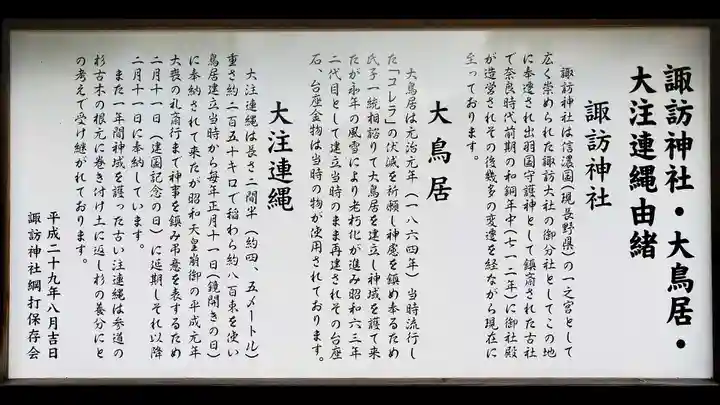 諏訪神社・大鳥居・
大注連縄由緒
諏訪神社
諏訪神社は信濃国(現長野県)の一之宮として
広く崇められた諏訪大社の御分社としてこの地
に奉遷され出羽国守護神として鎮斎された古社
で奈良時代前期の和銅年中(七一二年)に御社殿
が造営されその後幾多の変遷を経ながら現在に
至っております。
大鳥居
大鳥居は元治元年(一八六四年)当時流行し
た「コレラ」の伏滅を祈願し神慮を鎮め奉るため
氏子一統相謟りて大鳥居を建立し神域を護て来
たが永年の風雪により老朽化が進み昭和六三年
二代目として建立当時のまま再建されその台座
石、台座金物は当時の物が使用されております。
大注連縄
大注連縄は長さ二間半(約四、五メートル)
重さ約二百五十キロで稲わら約八百束を使い
鳥居建立当時から毎年正月十一日(鏡開きの日)
に奉納されて来たが昭和天皇崩御の平成元年
大喪の礼斎行まで神事を鎮み弔意を表するため
二月十一日(建国記念の日)に延期しそれ以降
二月十一日に奉納しています。
また一年間神域を護った古い注連縄は参道の
杉古木の根元に巻き付け土に返し杉の養分にと
の考えで受け継がれております。
平成二十九年八月吉日
諏訪神社綱打保存会